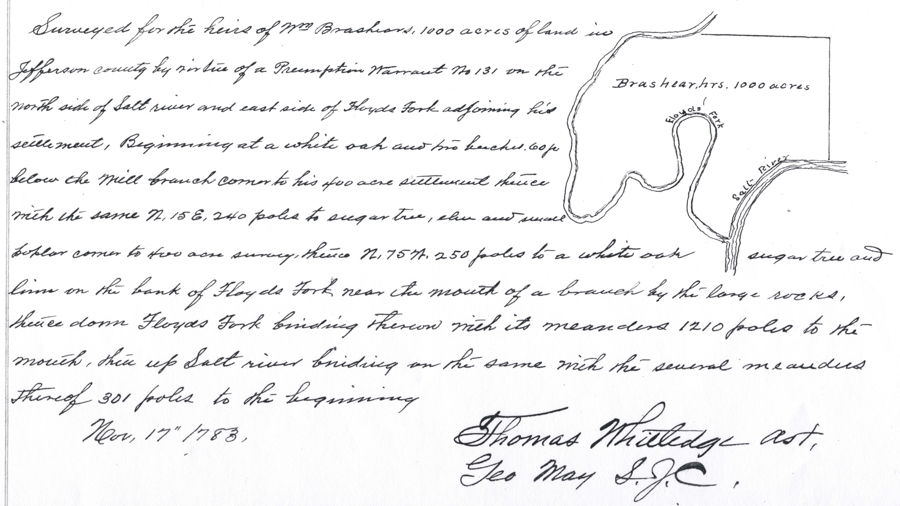 Surveyed for the heirs of Wm Brashears, 1000 acres of land in
Jefferson county by virtue of a Premption Warrant No 131 on the
north side of Salt river and east side of Floyds Fork adjoining his
settlement, Beginning at a white oak and two beeches. 60 p
below the Mill branch corner to his 400 acre settlement thence
with the same N. 15 E. 240 poles to sugar tree, elm and small
poplar corner to 400 acre survey, thence N. 75 W. 250 poles to a white oak sugar tree and
linn on the bank of Floyds Fork near the mouth of a branch by the large rocks,
thence down Floyds Fork binding thereon with its meanders 1210 poles to the
mouth, then up Salt river binding on the same with the several meanders
thereof 301 poles to the beginning
Nov, 17" 1783,
Thomas Whitledge Ast,
Geo May S.J.C.
Brashear, hrs. 1000 acres
Floyds Fork
Salt River